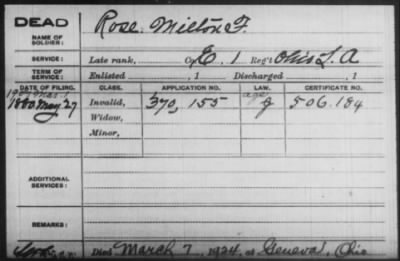 DEAD
NAME OF SOLDIER: Rose, Milton F.
SERVICE: Late rank, Co. E, 1 Reg't Ohio L. A
TERM OF SERVICE: Enlisted , 1 Discharged , 1
DATE OF FILING. CLASS. APPLICATION NO. LAW. CERTIFICATE NO.
1880 May 27 Invalid, 370,155 506.184
Widow,
Minor,
ADDITIONAL SERVICES:
REMARKS:
Died March 7, 1924, at Geneva, Ohio